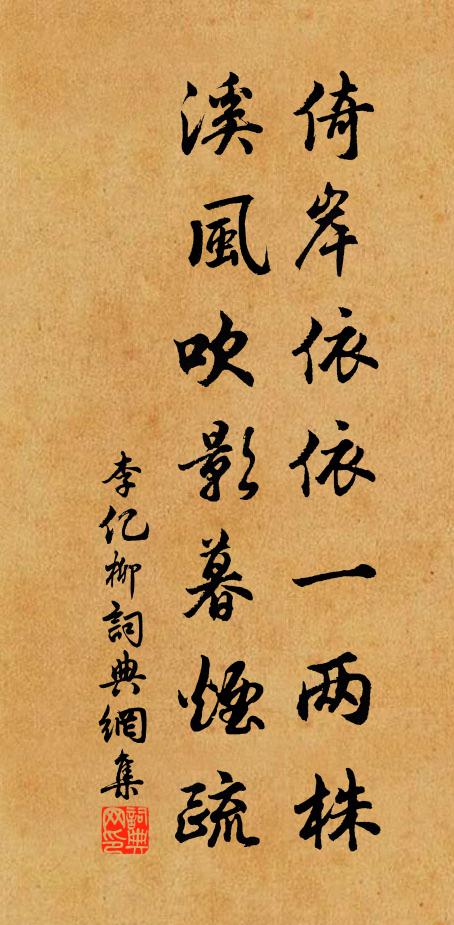 倚岸依依一两株
溪風吹影暮煙疏
李亿柳詞典網集
詞典网印